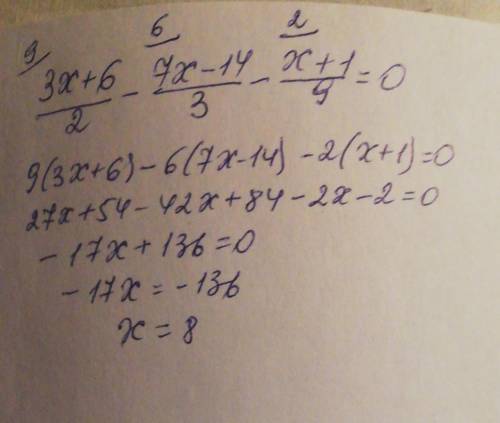 9/ 6/ 2/
(3x+6)/2 - (7x-14)/3 - (x+1)/9 = 0
9(3x+6)-6(7x-14)-2(x+1)=0
27x+54-42x+84-2x-2=0
-17x+136=0
-17x=-136
x=8